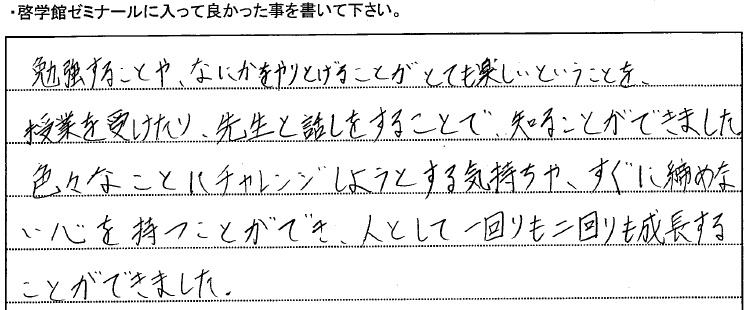 ・啓学館ゼミナールに入って良かった事を書いて下さい。
勉強することや、なにかをやりとげることがとても楽しいということを、
授業を受けたり、先生と話しをすることで、知ることができました
色々なことにチャレンジしようとする気持ちや、すぐに締めな
い心を持つことができ、人として一回りも二回りも成長する
ことができました。